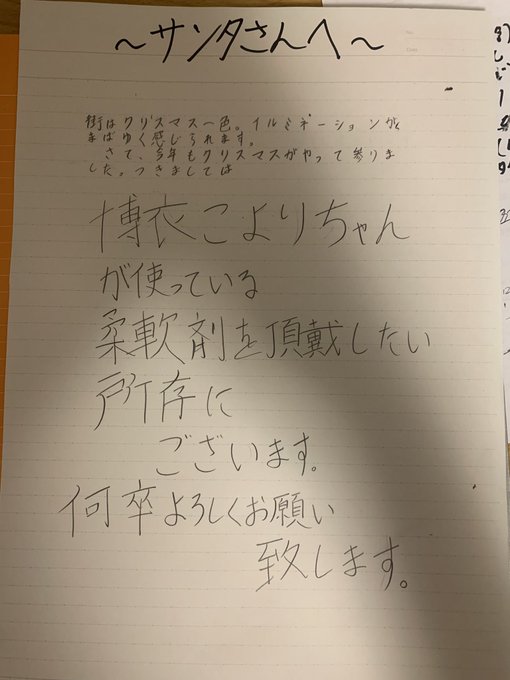 ～サンタさんへ～
街はクリスマス一色。イルミネーションが、
まばゆく感じられます。
さて、今年もクリスマスがやって参りま
した。つきましては
博衣こよりちゃん
が使っている
柔軟剤を頂戴したい
所存に
ございます。
何卒よろしくお願い
致します。